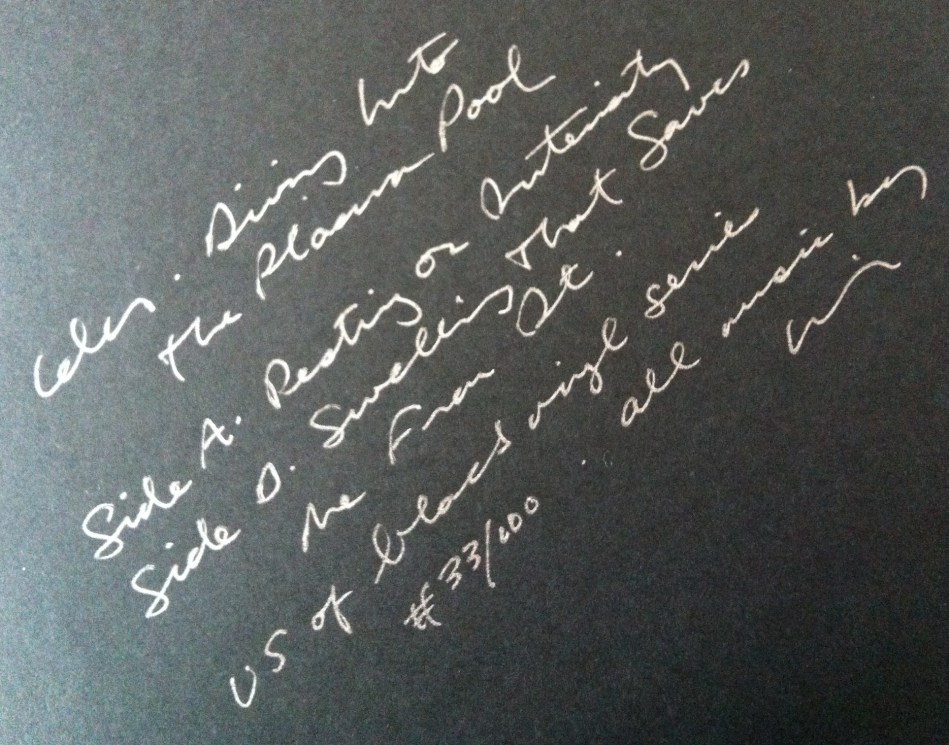 Celer. Diving Into
the Plasma Pool
Side A. Resting on Intensity
Side B. Swelling That Saves
Me From It.
V5 of black vinyl series
#33/100 . all music by